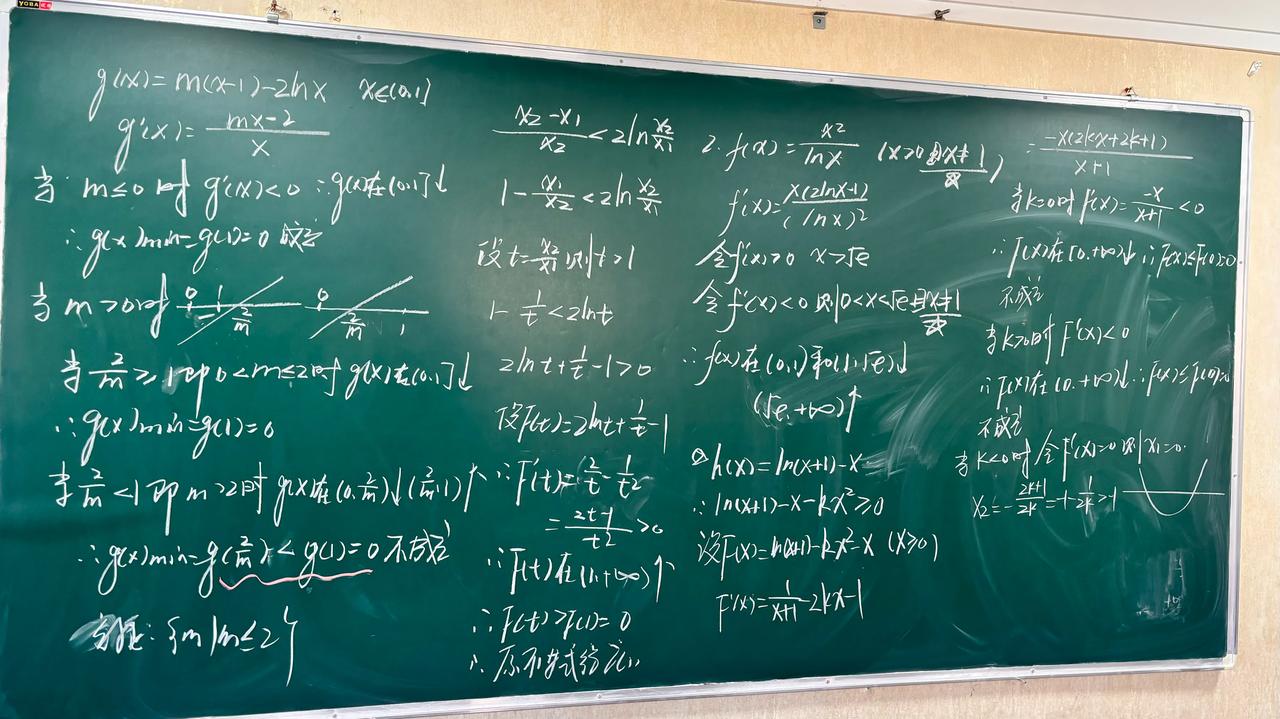 YOBA
g(x)=m(x-1)-2lnx x∈(0,1]
g'(x)=\frac{mx-2}{x}
当 m≤0时 g'(x)<0 ∴g(x)在(0,1]↓
∴g(x)min=g(1)=0 成立
当 m>0时 0 1 \frac{2}{m} 0 \frac{2}{m} 1
当\frac{2}{m}≥1即0<m≤2时 g(x)在(0,1]↓
∴g(x)min=g(1)=0
当\frac{2}{m}<1即m>2时 g(x)在(0,\frac{2}{m})↓(\frac{2}{m},1)↑
∴g(x)min=g(\frac{2}{m})<g(1)=0 不成立
综上:{m|m≤2}
\frac{x2-x1}{x2}<2ln\frac{x2}{x1}
1-\frac{x1}{x2}<2ln\frac{x2}{x1}
设t=\frac{x2}{x1}则t>1
1-\frac{1}{t}<2lnt
2lnt+\frac{1}{t}-1>0
设F(t)=2lnt+\frac{1}{t}-1
∴F'(t)=\frac{2}{t}-\frac{1}{t^2}
=\frac{2t-1}{t^2}>0
∴F(t)在(1,+∞)↑
∴F(t)>F(1)=0
∴原不等式
2. f(x)=\frac{x^2}{lnx} (x>0且x≠1)
f'(x)=\frac{x(2lnx-1)}{(lnx)^2}
令f'(x)>0 x>√e
令f'(x)<0 则0<x<√e且x≠1
∴f(x)在(0,1)和(1,√e)↓
(√e,+∞)↑
h(x)=ln(x+1)-x
∴ln(x+1)-x-kx²≥0
设F(x)=ln(x+1)-kx²-x (x≥0)
F'(x)=\frac{1}{x+1}-2kx-1
=\frac{-x(2kx+2k+1)}{x+1}
当k=0时F'(x)=\frac{-x}{x+1}<0
∴F(x)在[0,+∞)↓∴F(x)≤F(0)=0
不成立
当k>0时F'(x)<0
∴F(x)在(0,+∞)↓∴F(x)≤F(0)=0
不成立
当k<0时 令F'(x)=0则x1=0.
x2=-\frac{2k+1}{2k}=-1-\frac{1}{2k}>-1